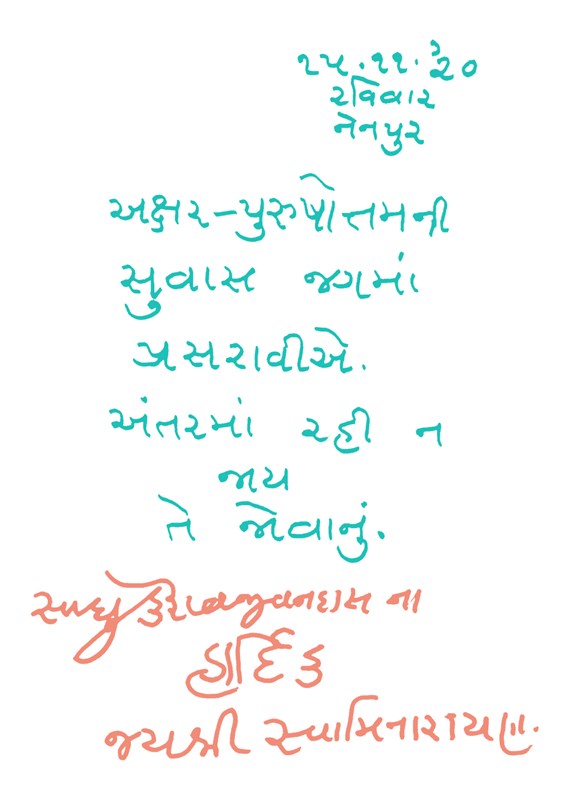 ૧૫.૧૧.'૨૦
રવિવાર
નેનપુર
અક્ષર-પુરુષોત્તમની
સુવાસ જગમાં
પ્રસરાવીએ.
અંતરમાં રહી ન
જાય
તે જોવાનું.
સાધુ કેશવજીવનદાસ ના
હાર્દિક
જયશ્રી સ્વામિનારાયણ.